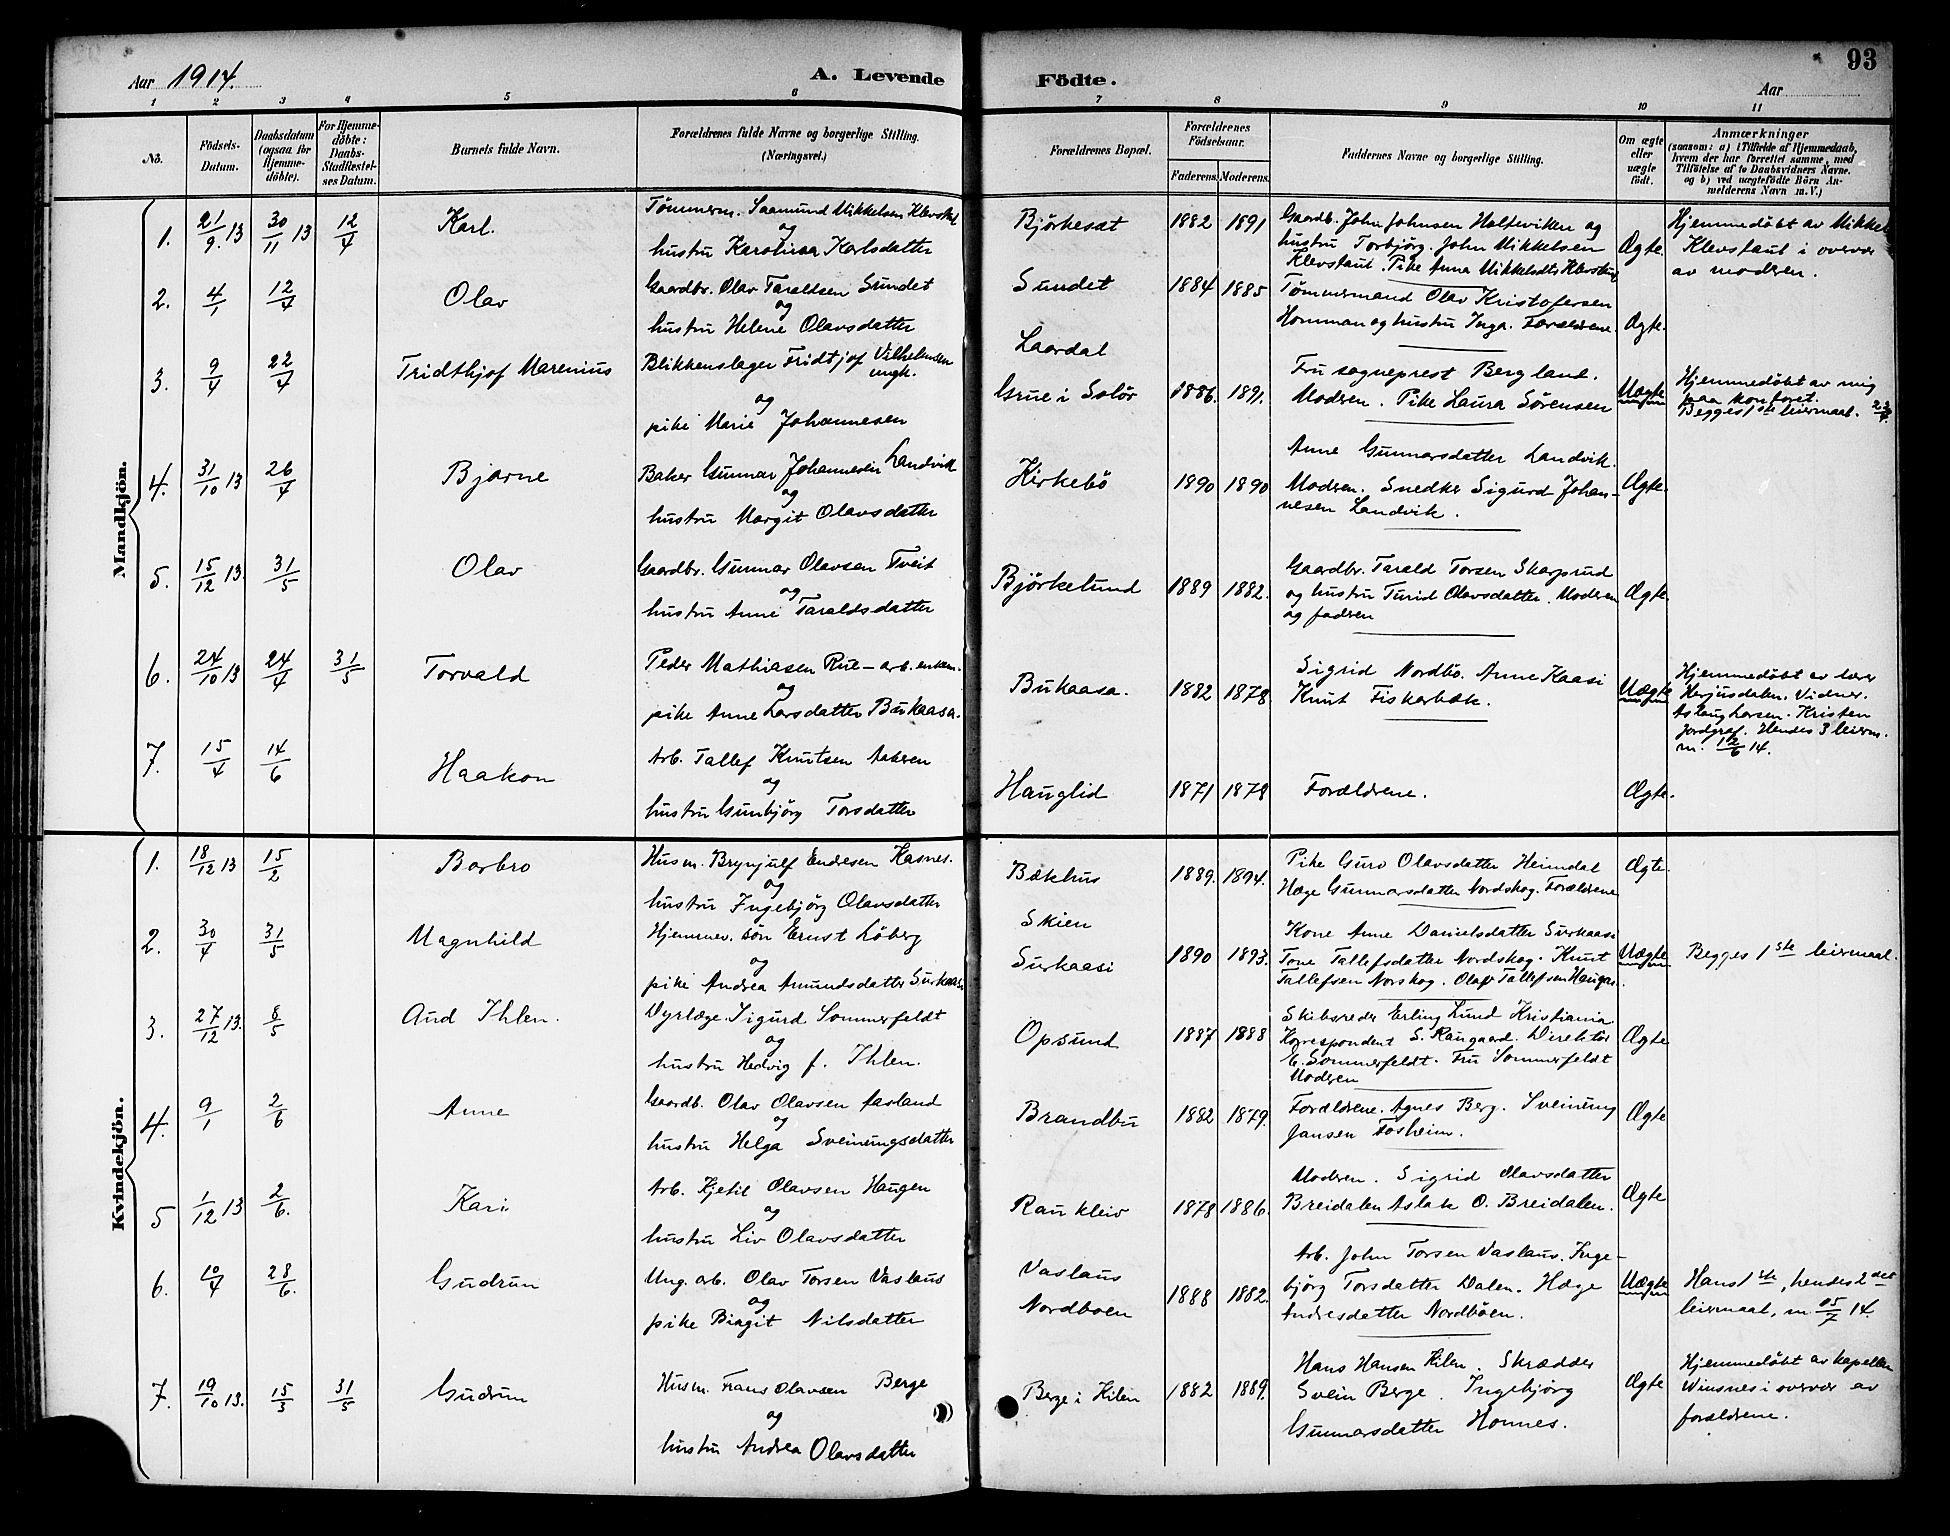 93
Aar 1914.
A. Levende
Födte.
Aar
1 2 3 4 5 6 7 8 9 10 11
No.
Födsels-Datum.
Daabsdatum (ogsaa for Hjemme-döbte).
For Hjemme-döbte: Daabs-Stadfæstel-ses Datum.
Barnets fulde Navn.
Forældrenes fulde Navne og borgerlige Stilling. (Næringsvei.)
Forældrenes Bopæl.
Forældrenes Födselsaar.
Faderens. Moderens.
Faddernes Navne og borgerlige Stilling.
Om ægte eller uægte födt.
Anmærkninger
(saasom: a) i Tilfælde af Hjemmedaab,
hvem der har forrettet samme, med
Tilföielse af to Daabsvidners Navne.
og b) ved uægtefödte Börn An-
melderens Navn m. V.)
Mandkjön.
1. 21/9. 13 30/11 13 12/4 Karl.
Tømmerm. Saamund Mikkelsen
og
hustru Karolina Karlsdatter
Bjørkesæt 1882 1891
Gaardb. John Johnsen Holteviken og
hustru Torbjørg. John Mikkelsen
Klevstaul. Pike Anna Mikkelsdtr Klevstaul
Ægte.
Hjemmedøbt av Mikkel
Klevstaul i overvær
av modren.
2. 4/1 12/4 Olav
Gaardbr. Olav Taraldsen Sundet
og
hustru Helene Olavsdatter
Sundet 1884 1885
Tømmermand Olav Kristofersen
Homman og hustru Inga. Forældrene.
Ægte.
3. 9/4 22/4 Fridthjof Marenius
Blikkenslager Fridtjof Vilhelmsen
ungk.
og
pike Marie Johannesen
Laardal
Grue i Solør 1886. 1891.
Fru sogneprest Bergland.
Modren. Pike Laura Sørensen
Uægte
Hjemmedøbt av mig
paa kontoret.
Begges 1ste leiermaal.
4. 31/10 13 26/4 Bjarne
Baker Gunnar Johannesen Landvik
og
hustru Margit Olavsdatter
Kirkebö 1890 1890
Anne Gunnarsdatter Landvik.
Modren. Snedker Sigurd Johan-
nesen Landvik.
Ægte.
5. 15/12 13. 31/5 Olav
Gaardbr. Gunnar Olavsen Tveit
og
hustru Anne Taraldsdatter
Bjørkelund 1889 1882.
Gaardbr. Tarald Torsen Skarprud
og hustru Turid Olavsdatter. Modren
og fadren
Ægte.
6. 24/10 13 24/4 31/5 Torvald
Peder Mathiasen Rue – arb. enkem.
og
pike Anne Larsdatter Bukaasa.
Bukaasa. 1882 1878
Sigrid Nordbö. Anne Kaasi
Knut Fiskerbæk.
Uægte
Hjemmedøbt av lærer
Herjusdalen. Vidner.
Aslaug Larsen. Kristen
Jordgraf. Hendes 3 leierm.
m. 12/6 14.
7. 15/4 14/6 Haakon
Arb. Tallef Knutsen Aaseen
og
hustru Gunbjörg Torsdatter
Hauglid 1871 1878
Forældrene.
Ægte.
Kvindekjön.
1. 18/12 13 15/2 Borbro
Husm. Brynjulf Endresen Kasnes.
og
hustru Ingebjörg Olavsdatter
Bækhus 1889. 1894.
Pike Guro Olavsdatter Heimdal
Hæge Gunnarsdatter Nordskog. Forældrene
Ægte.
2. 30/4 31/5 Magnhild
Hjemmev. søn Ernst Löberg
og
pike Andrea Amundsdatter Surkaasi
Skien
Surkaasi 1890 1893.
Kone Anne Danielsdatter Surkaasi
Tone Tallefsdatter Nordskog. Knut
Tallefsen Norskog. Olav Tallefsen Haugas.
Uægte
Begges 1ste leiermaal.
3. 27/12 13. 8/5 Aud Ihlen.
Dyrlæge. Sigurd Sommerfeldt
og
hustru Hedvig f. Ihlen.
Opsund 1887 1888
Skibsreder Erling Lund Kristiania
Korrespondent S. Raugaard. Direktör
E. Sommerfeldt. Fru Sommerfeldt
Modren
Ægte
4. 9/1 2/6 Anne
Gaardb. Olav Olavsen Aasland
og
hustru Helga Sveinungsdatter
Brandbu 1882 1879.
Forældrene. Agnes Berg. Sveinung
Jansen Fosheim.
Ægte
5 1/12 13 2/6. Kari
Arb. Kjetil Olavsen Haugen
og
hustru Liv Olavsdatter
Raukleiv 1878 1886.
Modren. Sigrid Olavsdatter
Breidalen Aslak O. Breidalen.
Ægte
6. 10/4 28/6. Gudrun
Ung. arb. Olav Torsen Vaslaus
og
pike Birgit Nilsdatter
Vaslaus
Nordböen 1888 1882.
Arb. John Torsen Vaslaus. Inge-
björg Torsdatter Dalen. Hæge
Andresdatter Nordböen.
Uægte
Hans 1ste, hendes 2det
leiermaal, m 15/7 14.
7. 19/10 13. 15/3 31/5 Gudrun
Husm. Frans Olavsen Berge
og
hustru Andrea Olavsdatter
Berge i Kilen 1882 1889.
Hans Hansen Kilen. Skrædder
Svein Berge. Ingebjörg
Gunnarsdatter Honnes.
Ægte
Hjemmedøbt av kapellan
Winsnes i overvær av
forældrene.